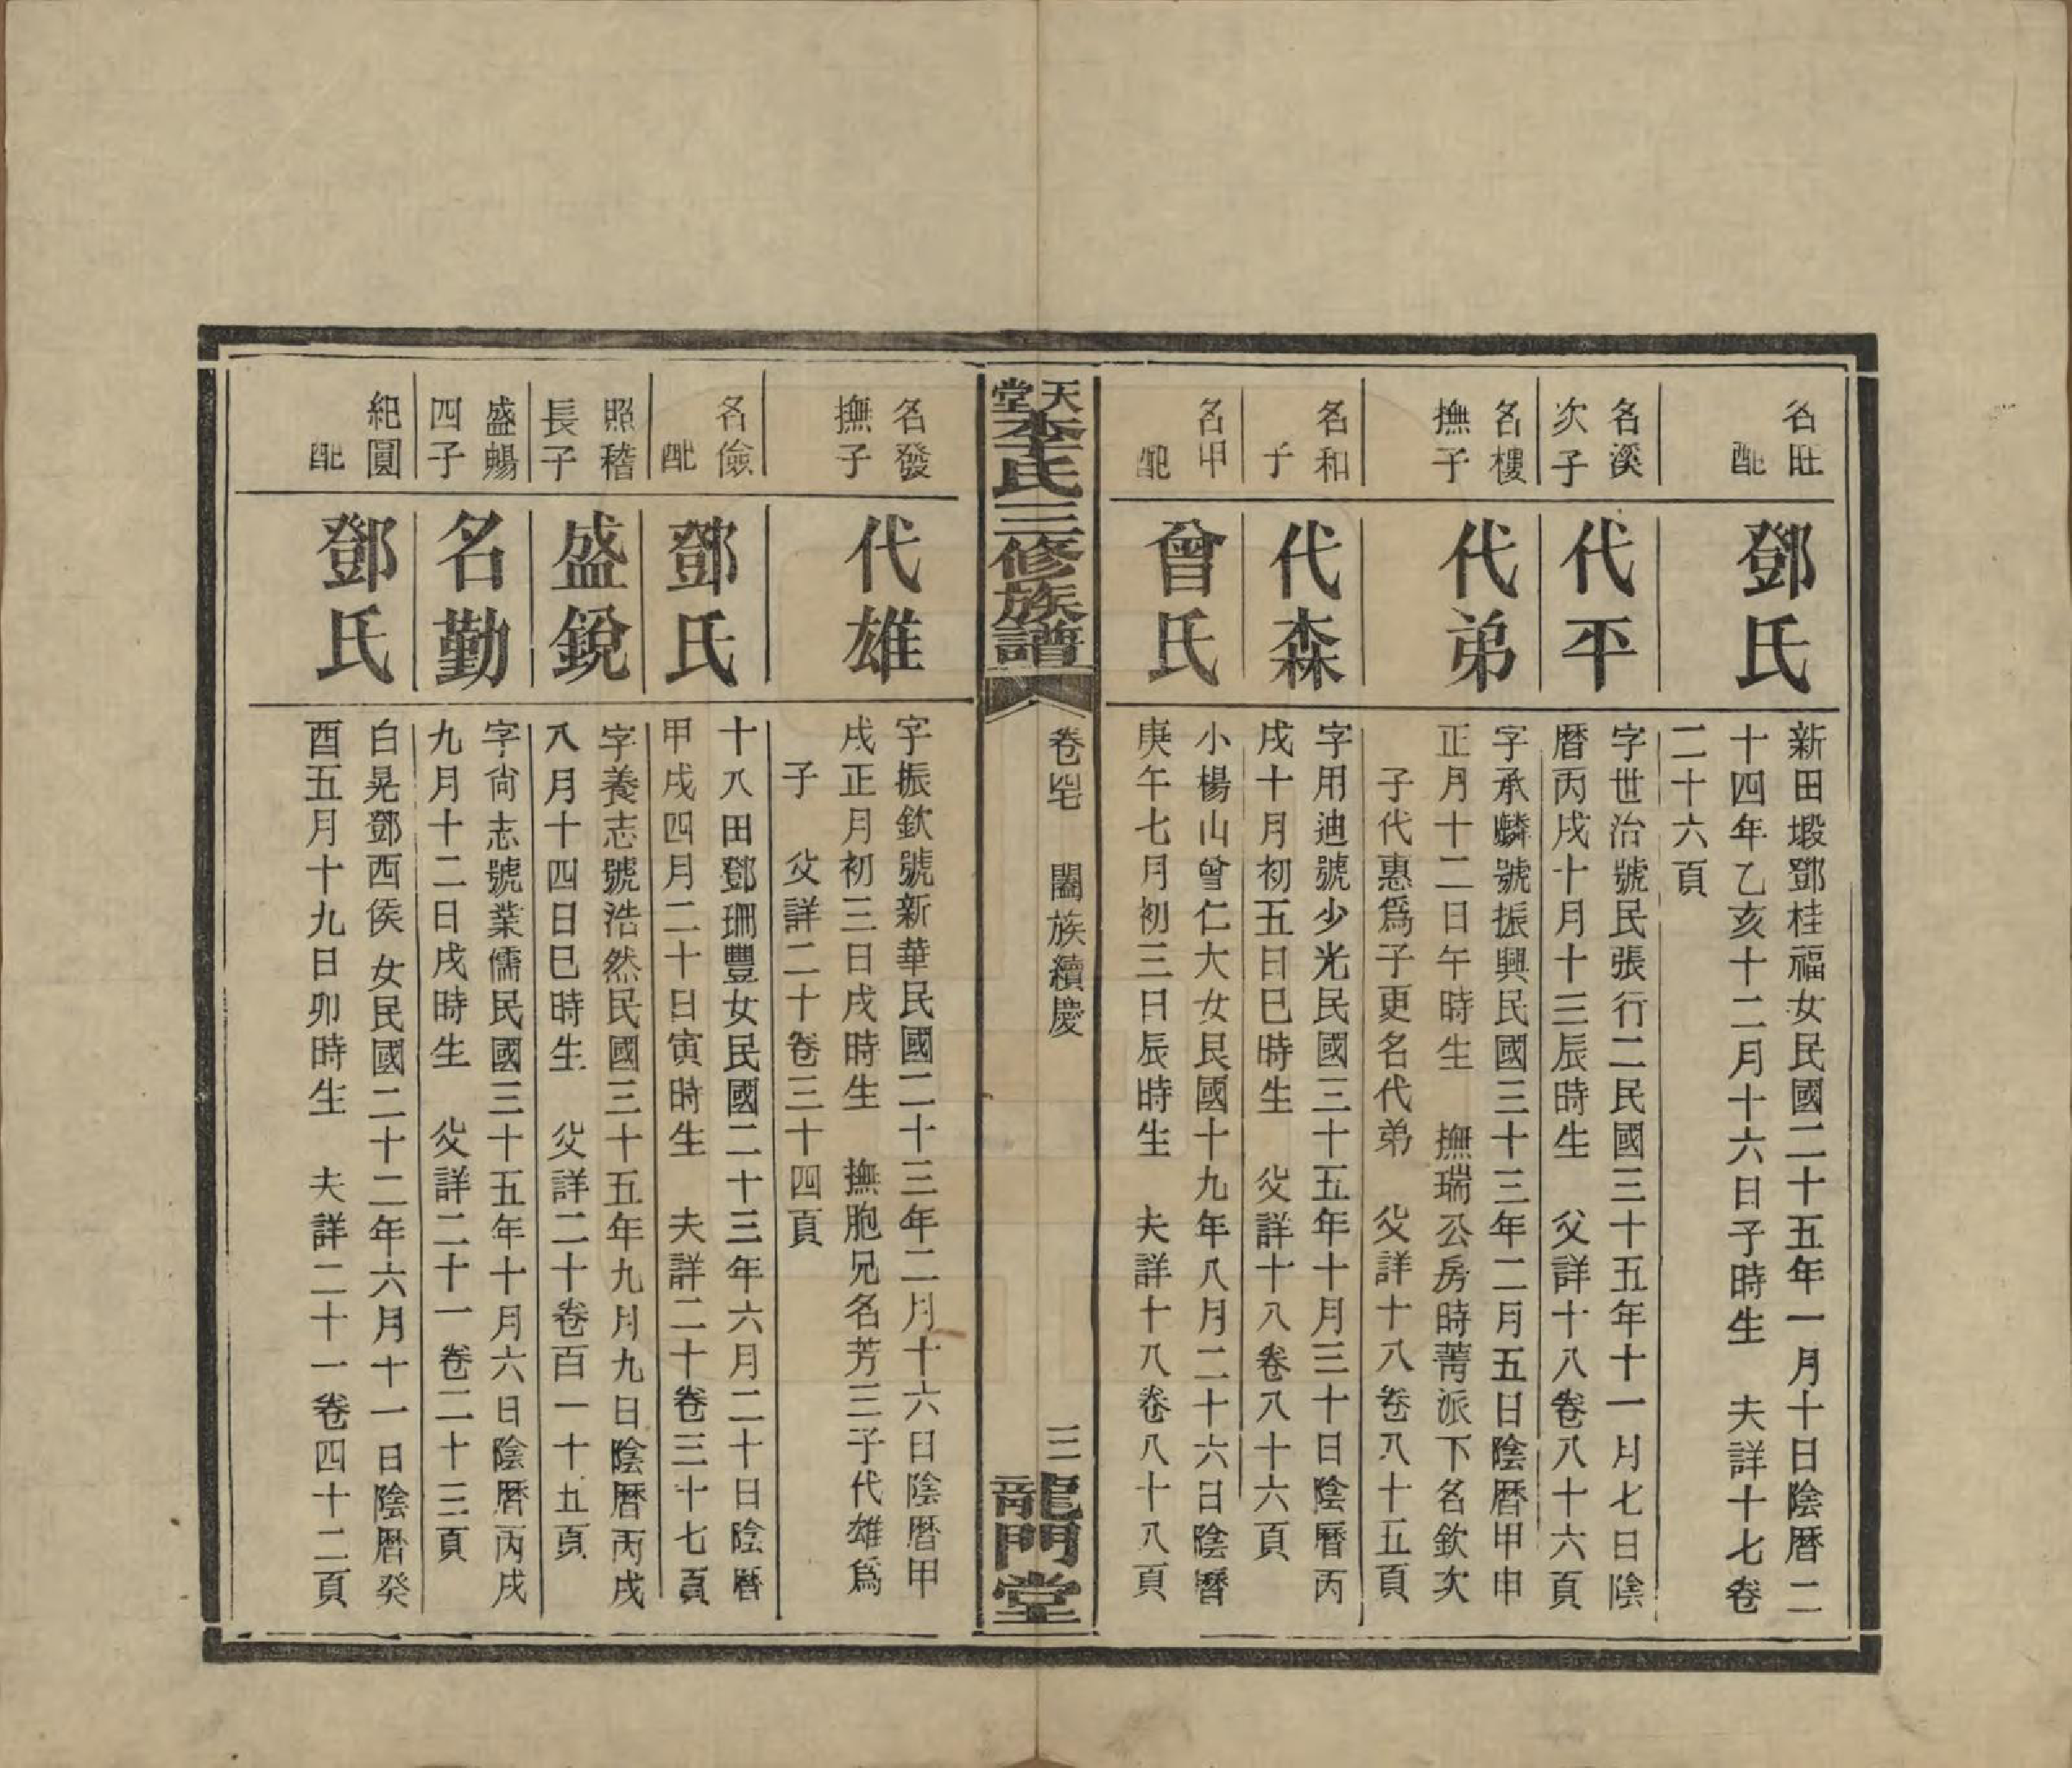 名旺
配
鄧氏
新田塅鄧桂福女民國二十五年一月十日陰曆二
十四年乙亥十二月十六日子時生　夫詳十七卷
二十六頁
名溪
次子
代平
字世治號民張行二民國三十五年十一月七日陰
曆丙戌十月十三辰時生　父詳十八卷八十六頁
名樓
撫子
代弟
字承麟號振興民國三十三年二月五日陰曆甲申
正月十二日午時生　撫瑞公房時菁派下名欽次
子代惠爲子更名代弟　父詳十八卷八十五頁
名和
子
代森
字用迪號少光民國三十五年十月三十日陰曆丙
戌十月初五日巳時生　父詳十八卷八十六頁
名甲
配
曾氏
小楊山曾仁大女民國十九年八月二十六日陰曆
庚午七月初三日辰時生　夫詳十八卷八十八頁
天堂李氏三修族譜
卷四七　闔族續慶
三
龍門堂
名發
撫子
代雄
字振欽號新華民國二十三年二月十六日陰曆甲
戌正月初三日戌時生　撫胞兄名芳三子代雄爲
子　父詳二十卷三十四頁
名儉
配
鄧氏
十八田鄧珊豐女民國二十三年六月二十日陰曆
甲戌四月二十日寅時生　夫詳二十卷三十七頁
照稽
長子
盛銳
字養志號浩然民國三十五年九月九日陰曆丙戌
八月十四日巳時生　父詳二十卷百一十五頁
盛暢
四子
名勤
字尙志號業儒民國三十五年十月六日陰曆丙戌
九月十二日戌時生　父詳二十一卷二十三頁
紀圓
配
鄧氏
白晃鄧西侯女民國二十二年六月十一日陰曆癸
酉五月十九日卯時生　夫詳二十一卷四十二頁